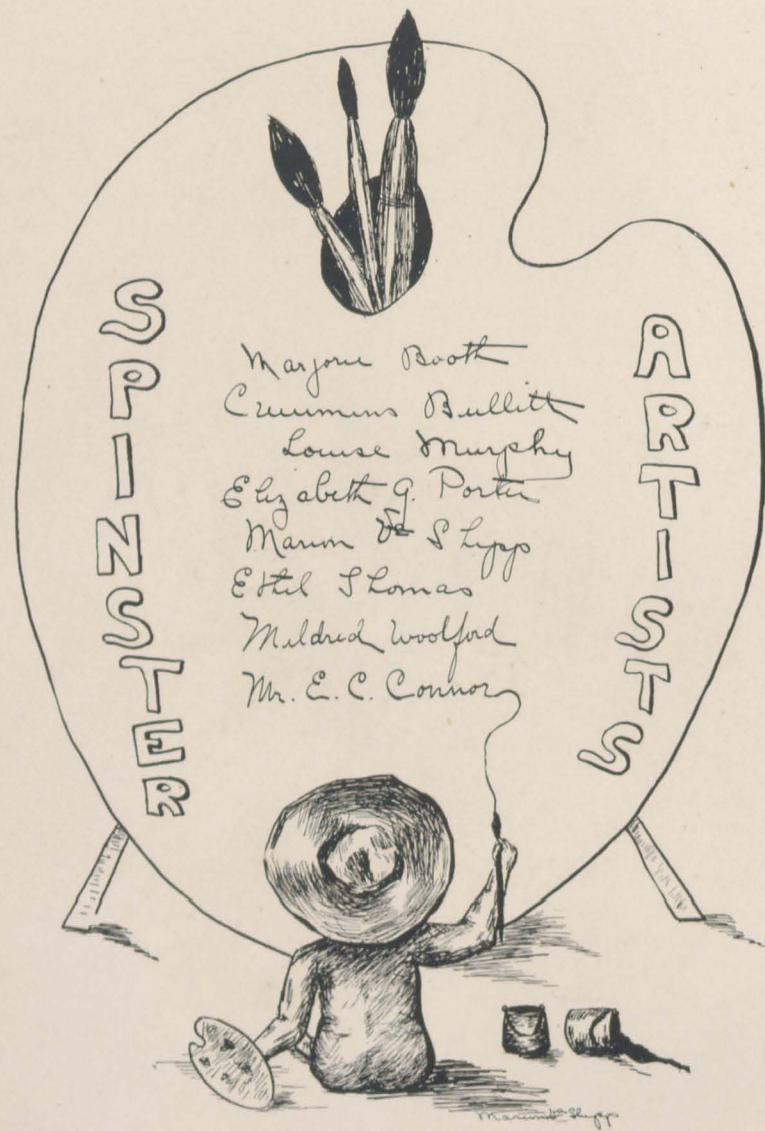 SPINSTER
ARTISTS
Marjorie Booth
Cummins Bullitt
Louise Murphy
Elizabeth G. Porter
Marion Shipp
Ethel Thomas
Mildred Woolford
Mr. E. C. Connor
Marion Shipp